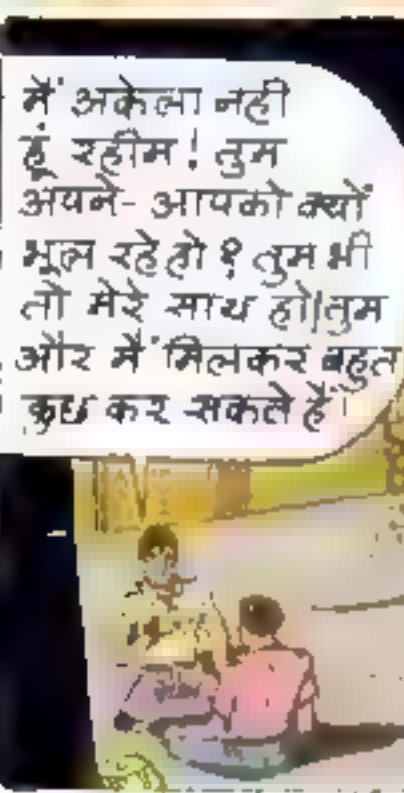 मैं अकेला नही
हूं रहीम! तुम
अपने-आपको क्यों
भूल रहे हो? तुम भी
तो मेरे साथ हो।तुम
और मैं मिलकर बहुत
कुछ कर सकते हैं।